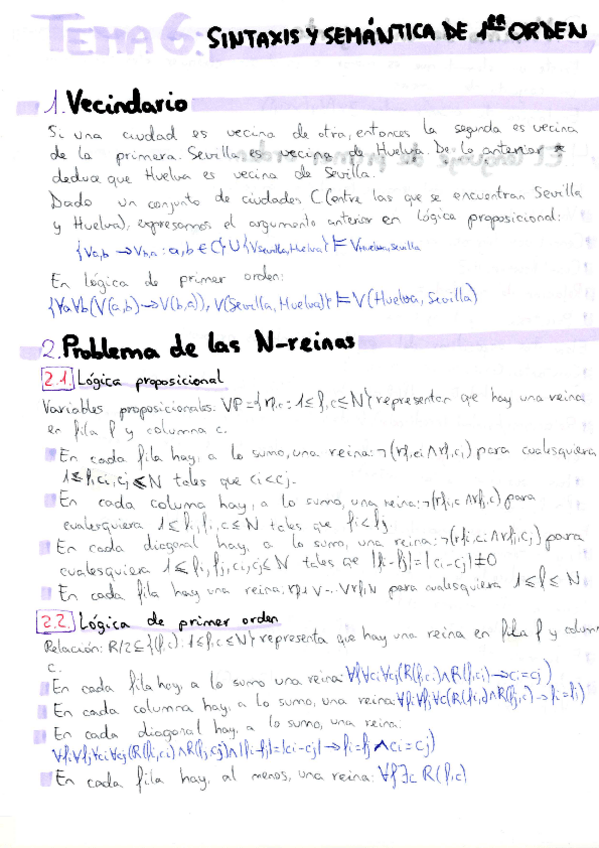 TEMA 6: SINTAXIS Y SEMÁNTICA DE 1er ORDEN
1. Vecindario
Si una ciudad es vecina de otra, entonces la segunda es vecina
de la primera. Sevilla es vecina de Huelva. De lo anterior se
deduce que Huelva es vecina de Sevilla.
Dado un conjunto de ciudades C (entre las que se encuentran Sevilla
y Huelva), expresamos el argumento anterior en lógica proposicional:
{Va,b → Vb,a : a,b ∈ C} ∪ {VSevilla,Huelva} ⊨ VHuelva,Sevilla
En lógica de primer orden:
{∀a∀b(V(a,b)→V(b,a)), V(Sevilla, Huelva)} ⊨ V(Huelva, Sevilla)
2. Problema de las N-reinas
2.1. Lógica proposicional
Variables proposicionales. VP = {rf,c : 1≤f,c≤N} representan que hay una reina
en fila f y columna c.
En cada fila hay, a lo sumo, una reina: ¬(rf,ci ∧ rf,cj) para cualesquiera
1≤f,ci,cj≤N tales que ci<cj.
En cada columna hay, a lo sumo, una reina: ¬(rfi,c ∧ rfj,c) para
cualesquiera 1≤fi,fj,c≤N tales que fi<fj
En cada diagonal hay, a lo sumo, una reina: ¬(rfi,ci ∧ rfj,cj) para
cualesquiera 1≤fi,fj,ci,cj≤N tales que |fi-fj|=|ci-cj|≠0
En cada fila hay una reina: rf,1 ∨ ... ∨ rf,N para cualesquiera 1≤f≤N
2.2. Lógica de primer orden
Relación: R/2 ⊆ {(f,c) : 1≤f,c≤N} representa que hay una reina en fila f y colum
c.
En cada fila hay, a lo sumo una reina: ∀f∀ci∀cj(R(f,ci)∧R(f,cj)→ci=cj)
En cada columna hay, a lo sumo, una reina: ∀fi∀fj∀c(R(fi,c)∧R(fj,c)→fi=fj)
En cada diagonal hay, a lo sumo, una reina:
∀fi∀fj∀ci∀cj(R(fi,ci)∧R(fj,cj)∧|fi-fj|=|ci-cj|→fi=fj∧ci=cj)
En cada fila hay, al menos, una reina: ∀f∃c R(f,c)